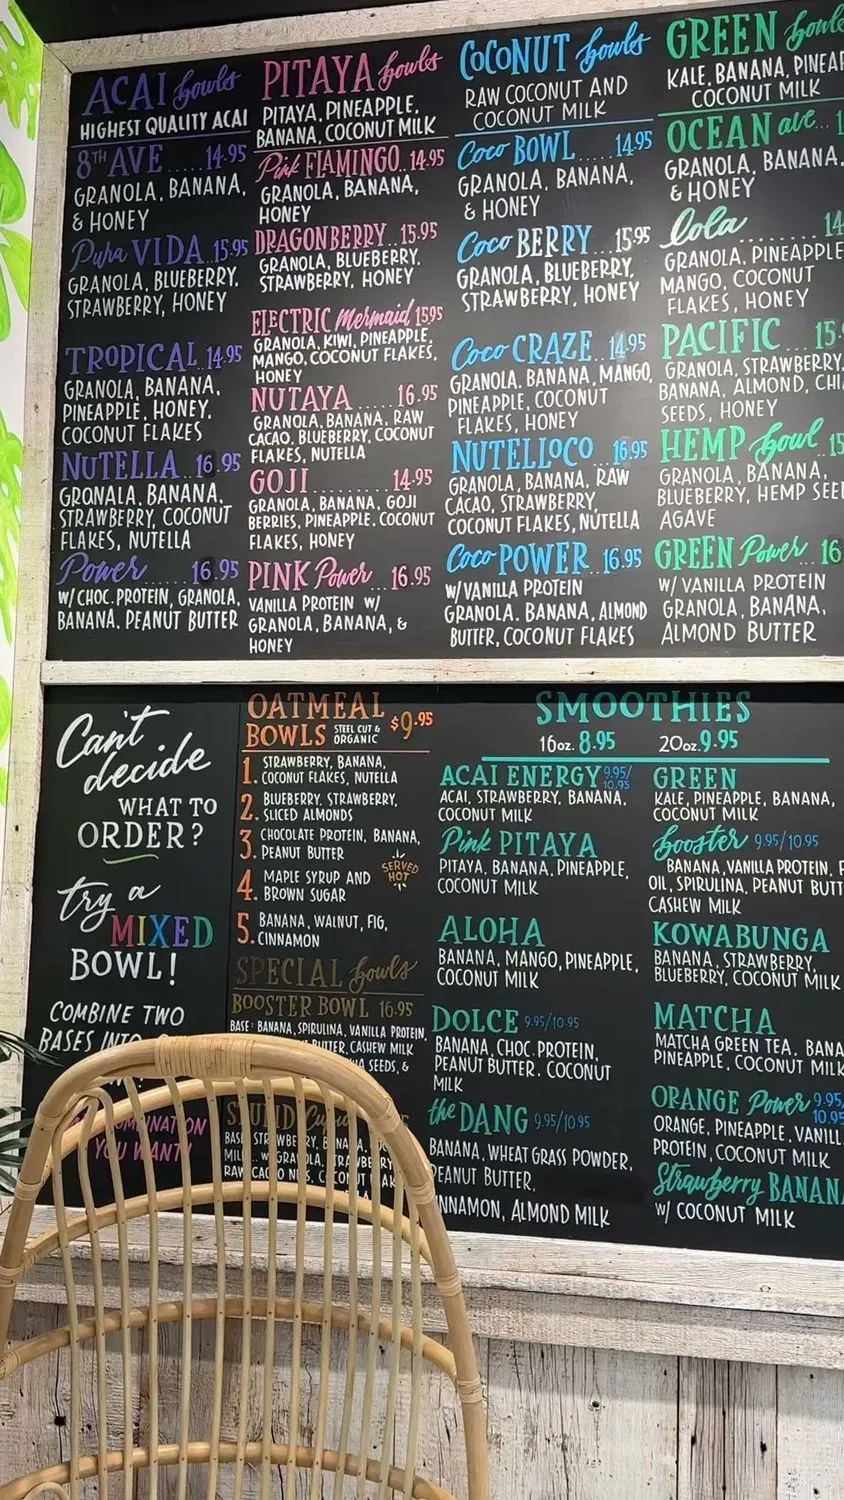 ACAI bowls
HIGHEST QUALITY ACAI
8TH AVE ..... 14.95
GRANOLA, BANANA,
& HONEY
Pura VIDA .. 15.95
GRANOLA, BLUEBERRY,
STRAWBERRY, HONEY
TROPICAL .. 14.95
GRANOLA, BANANA,
PINEAPPLE, HONEY,
COCONUT FLAKES
NUTELLA .. 16.95
GRONALA, BANANA,
STRAWBERRY, COCONUT
FLAKES, NUTELLA
Power ...... 16.95
W/ CHOC. PROTEIN, GRANOLA,
BANANA, PEANUT BUTTER
PITAYA bowls
PITAYA, PINEAPPLE,
BANANA, COCONUT MILK
Pink FLAMINGO .. 14.95
GRANOLA, BANANA,
HONEY
DRAGONBERRY .. 15.95
GRANOLA, BLUEBERRY,
STRAWBERRY, HONEY
ELECTRIC Mermaid 15.95
GRANOLA, KIWI, PINEAPPLE,
MANGO, COCONUT FLAKES,
HONEY
NUTAYA ..... 16.95
GRANOLA, BANANA, RAW
CACAO, BLUEBERRY, COCONUT
FLAKES, NUTELLA
GOJI .......... 14.95
GRANOLA, BANANA, GOJI
BERRIES, PINEAPPLE, COCONUT
FLAKES, HONEY
PINK Power ... 16.95
VANILLA PROTEIN W/
GRANOLA, BANANA, &
HONEY
COCONUT bowls
RAW COCONUT AND
COCONUT MILK
Coco BOWL ..... 14.95
GRANOLA, BANANA,
& HONEY
Coco BERRY .... 15.95
GRANOLA, BLUEBERRY,
STRAWBERRY, HONEY
Coco CRAZE .. 14.95
GRANOLA, BANANA, MANGO,
PINEAPPLE, COCONUT
FLAKES, HONEY
NUTELLOCO ... 16.95
GRANOLA, BANANA, RAW
CACAO, STRAWBERRY,
COCONUT FLAKES, NUTELLA
Coco POWER .. 16.95
W/ VANILLA PROTEIN
GRANOLA, BANANA, ALMOND
BUTTER, COCONUT FLAKES
GREEN bowls
KALE, BANANA, PINEAP
COCONUT MILK
OCEAN ave... 1
GRANOLA, BANANA,
& HONEY
Lola ........ 14
GRANOLA, PINEAPPLE
MANGO, COCONUT
FLAKES, HONEY
PACIFIC ... 15
GRANOLA, STRAWBERRY,
BANANA, ALMOND, CHI
SEEDS, HONEY
HEMP bowl 15
GRANOLA, BANANA,
BLUEBERRY, HEMP SEE
AGAVE
GREEN Power .. 16
W/ VANILLA PROTEIN
GRANOLA, BANANA,
ALMOND BUTTER
Can't
decide
WHAT TO
ORDER?
try a
MIXED
BOWL!
COMBINE TWO
BASES INTO
YOU WANT!
OATMEAL
BOWLS STEEL CUT & ORGANIC $9.95
1. STRAWBERRY, BANANA,
COCONUT FLAKES, NUTELLA
2. BLUEBERRY, STRAWBERRY,
SLICED ALMONDS
3. CHOCOLATE PROTEIN, BANANA,
PEANUT BUTTER
SERVED
HOT
4. MAPLE SYRUP AND
BROWN SUGAR
5. BANANA, WALNUT, FIG,
CINNAMON
SPECIAL bowls
BOOSTER BOWL 16.95
BASE: BANANA, SPIRULINA, VANILLA PROTEIN,
BUTTER, CASHEW MILK
SEEDS, &
SMOOTHIES
16oz. 8.95 20oz. 9.95
ACAI ENERGY 9.95/10.95
ACAI, STRAWBERRY, BANANA,
COCONUT MILK
Pink PITAYA
PITAYA, BANANA, PINEAPPLE,
COCONUT MILK
ALOHA
BANANA, MANGO, PINEAPPLE,
COCONUT MILK
DOLCE 9.95/10.95
BANANA, CHOC. PROTEIN,
PEANUT BUTTER, COCONUT
MILK
the DANG 9.95/10.95
BANANA, WHEAT GRASS POWDER,
PEANUT BUTTER,
INNAMON, ALMOND MILK
GREEN
KALE, PINEAPPLE, BANANA,
COCONUT MILK
booster 9.95/10.95
BANANA, VANILLA PROTEIN, F
OIL, SPIRULINA, PEANUT BUTT
CASHEW MILK
KOWABUNGA
BANANA, STRAWBERRY,
BLUEBERRY, COCONUT MILK
MATCHA
MATCHA GREEN TEA, BANA
PINEAPPLE, COCONUT MILK
ORANGE Power 9.95/
10.95
ORANGE, PINEAPPLE, VANILL
PROTEIN, COCONUT MILK
Strawberry BANAN
W/ COCONUT MILK